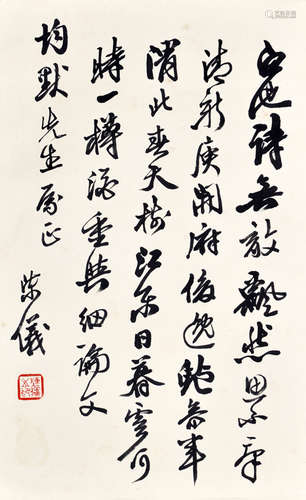 白也詩無敵飄然思不羣
清新庾開府俊逸鮑參軍
渭北春天樹江東日暮雲何
時一樽酒重與細論文
均默先生屬正
儀